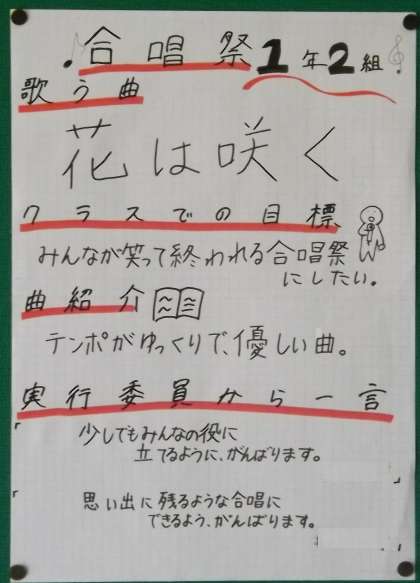 合唱祭 1年2組
歌う曲
花は咲く
クラスでの目標
みんなが笑って終われる合唱祭
にしたい。
曲紹介
テンポがゆっくりで、優しい曲。
実行委員から一言
「少しでもみんなの役に
立てるように、がんばります。
」
「思い出に残るような合唱に
できるよう、がんばります。
」